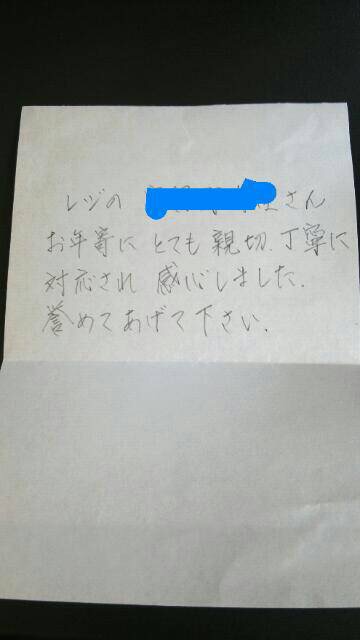 レジの さん
お年寄に とても 親切、丁寧に
対応され 感心しました.
誉めてあげて下さい.